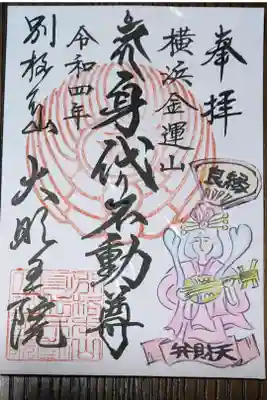 奉拝
良縁
弁財天
横浜金運山
身代り不動尊
令和四年
別格本山
大明王院